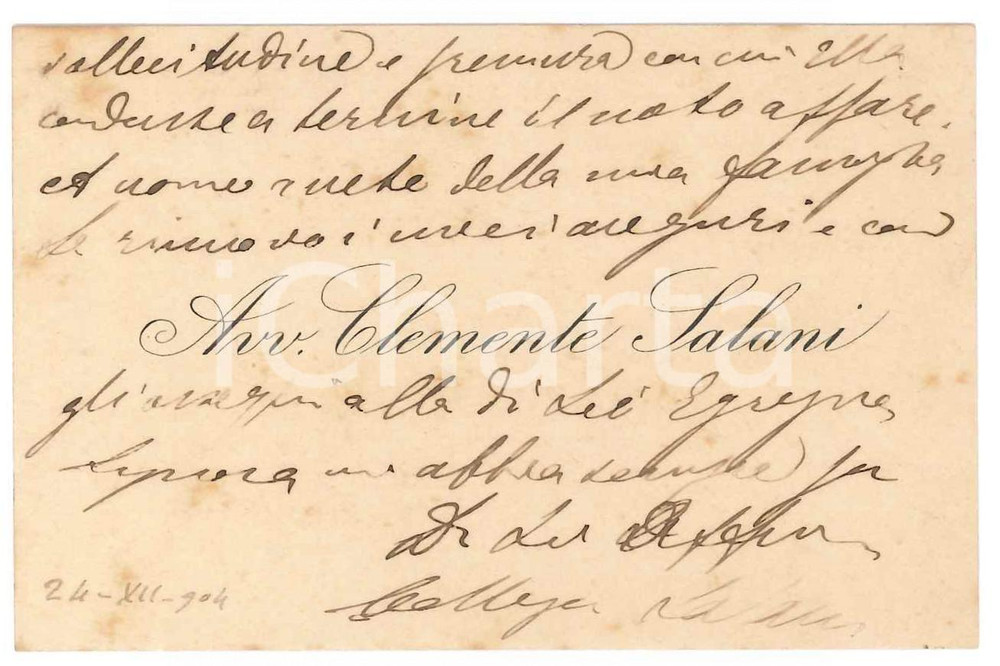 sollecitudine e premura con cui Ella
condusse a termine il noto affare.
A nome anche della mia famiglia
Le rinnovo i miei auguri e con
Avv. Clemente Salani
gli ossequi alla di Lei Egregia
Signora mi abbia sempre per
Di Lei
Collega Salani
24-XII-904
iCharta